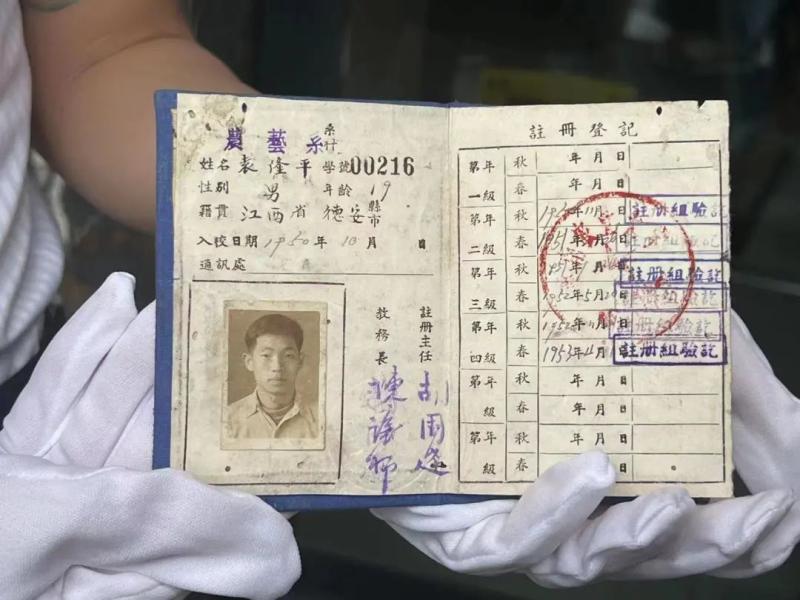 農藝系
系
科
姓名 袁隆平 學號00216
性別 男 年齡 19
籍貫 江西省 德安縣市
入校日期 1950年10月 日
通訊處
註冊主任
教務長
註冊登記
第一年級 秋 年月日
春 年月日
第二年級 秋 年11月 日 註册組驗訖
春 1951年 月 日 註册組驗訖
第三年級 秋 1951年 月 日 註册組驗訖
春 1952年5月 日 註册組驗訖
第四年級 秋 1952年 月 日 註册組驗訖
春 1953年 月 日 註册組驗訖
第年級 秋 年月日
春 年月日
第年級 秋 年月日
春 日